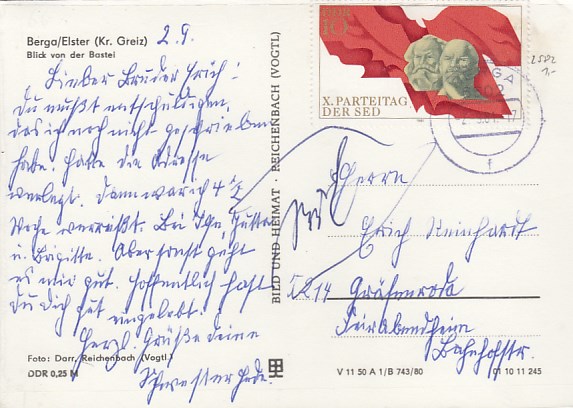 Berga/Elster (Kr. Greiz) 2.9.
Blick von der Bastei
Lieber Bruder Erich!
Du mußt entschuldigen,
das ich noch nicht geschrieben
habe. Hatte die Adresse
verlegt. Dann war ich 4 1/2
Woche verreißt. Bei Ilse, Gustav
u. Brigitte. Aber sonst geht
es mir gut. Hoffentlich hast
du dich gut eingelebt.
Herzl. Grüße deine
Schwester Hede.
Foto: Darr, Reichenbach (Vogtl.)
DDR 0,25 M
BILD UND HEIMAT · REICHENBACH (VOGTL)
DDR
10
X. PARTEITAG
DER SED
2582
1,-
Herrn
Erich Reinhardt
5214 Gräfenroda
Feierabendheim
Bahnhofstr.
V 11 50 A 1/B 743/80 01 10 11 245